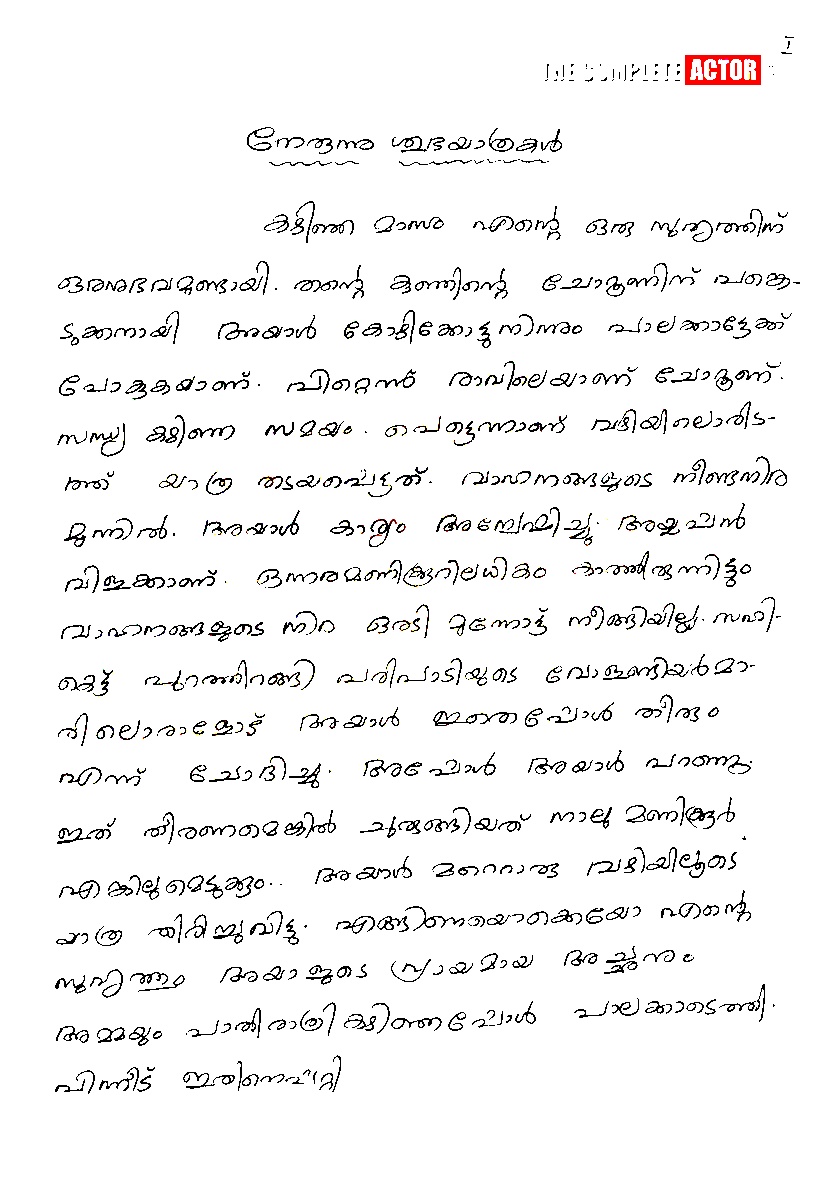 I
THE COMPLETE ACTOR
നേരുന്നു ശുഭയാത്രകൾ
കഴിഞ്ഞ മാസം എന്റെ ഒരു സുഹൃത്തിന്
ഒരനുഭവമുണ്ടായി. തന്റെ കുഞ്ഞിന്റെ ചോറൂണിന് പങ്കെ-
ടുക്കാനായി അയാൾ കോഴിക്കോട്ടുനിന്നും പാലക്കാട്ടേക്ക്
പോകുകയാണ്. പിറ്റെന്ന് രാവിലെയാണ് ചോറൂണ്.
സന്ധ്യ കഴിഞ്ഞ സമയം. പെട്ടെന്നാണ് വഴിയിലൊരിട-
ത്ത് യാത്ര തടയപ്പെട്ടത്. വാഹനങ്ങളുടെ നീണ്ടനിര
മുന്നിൽ. അയാൾ കാര്യം അന്വേഷിച്ചു. അയ്യപ്പൻ
വിളക്കാണ്. ഒന്നരമണിക്കൂറിലധികം കാത്തിരുന്നിട്ടും
വാഹനങ്ങളുടെ നിര ഒരടി മുന്നോട്ട് നീങ്ങിയില്ല. സഹി-
കെട്ട് പുറത്തിറങ്ങി പരിപാടിയുടെ വോളണ്ടിയർമാ-
രിലൊരാളോട് അയാൾ ഇതെപ്പോൾ തീരും
എന്ന് ചോദിച്ചു. അപ്പോൾ അയാൾ പറഞ്ഞു:
ഇത് തീരണമെങ്കിൽ ചുരുങ്ങിയത് നാലു മണിക്കൂർ
എങ്കിലുമെടുക്കും.. അയാൾ മറ്റൊരു വഴിയിലൂടെ
യാത്ര തിരിച്ചുവിട്ടു. എങ്ങിനെയൊക്കെയോ എന്റെ
സുഹൃത്തും അയാളുടെ പ്രായമായ അച്ഛനും
അമ്മയും പാതിരാത്രി കഴിഞ്ഞപ്പോൾ പാലക്കാടെത്തി.
പിന്നീട് ഇതിനെപ്പറ്റി